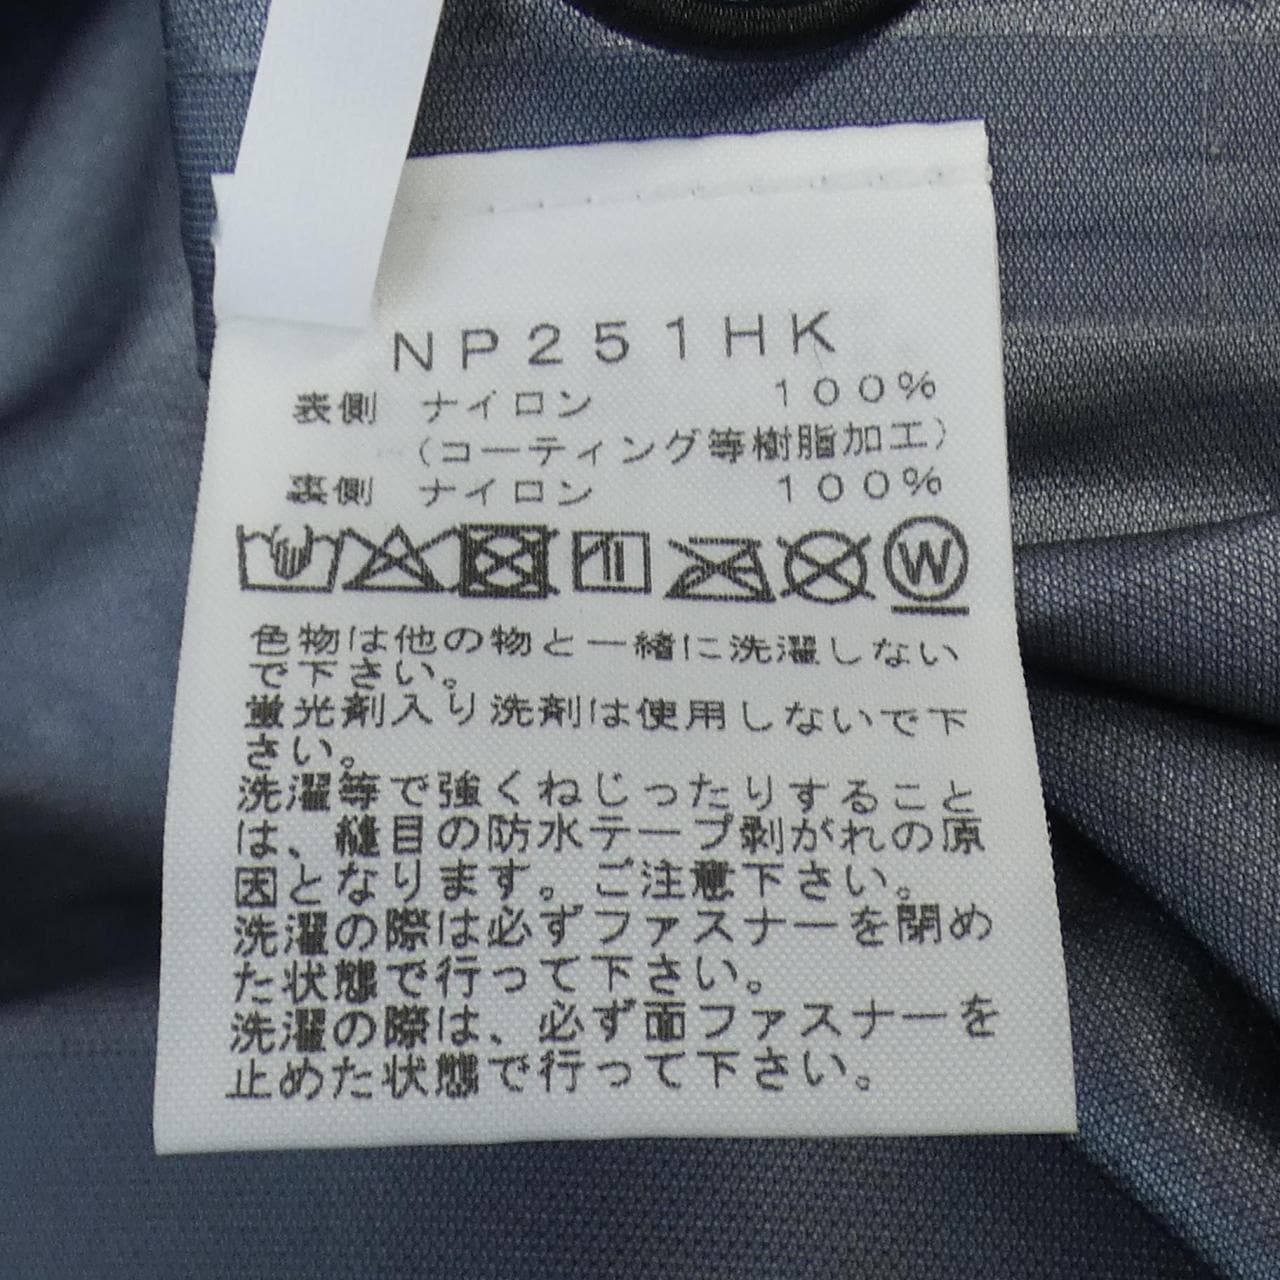 NP251HK
表側 ナイロン 100%
(コーティング等樹脂加工)
裏側 ナイロン 100%
W
色物は他の物と一緒に洗濯しない
で下さい。
蛍光剤入り洗剤は使用しないで下
さい。
洗濯等で強くねじったりすること
は、縫目の防水テープ剥がれの原
因となります。ご注意下さい。
洗濯の際は必ずファスナーを閉め
た状態で行って下さい。
洗濯の際は、必ず面ファスナーを
止めた状態で行って下さい。